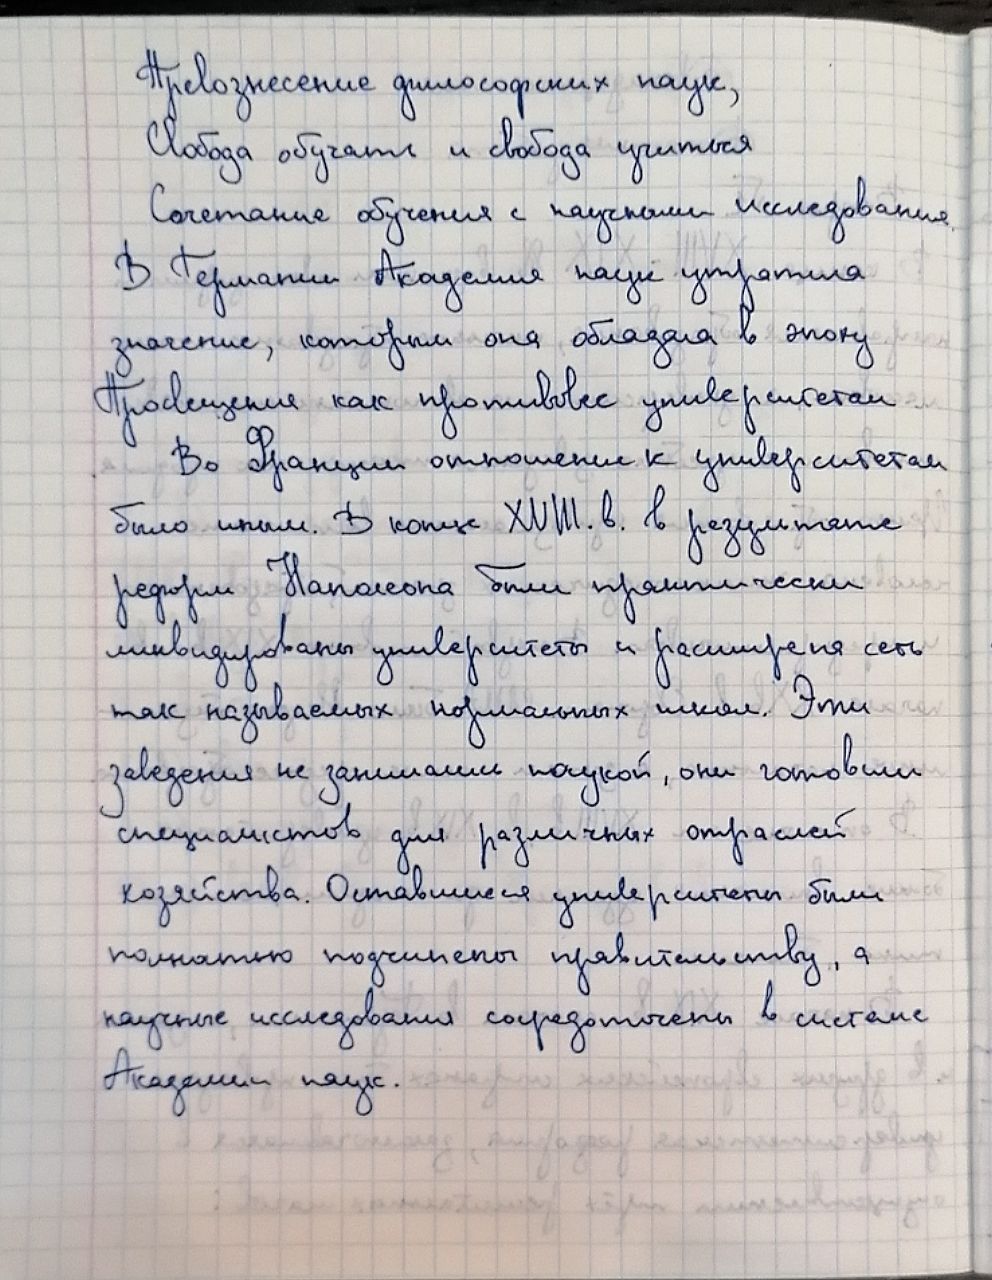 Превознесение философских наук,
Свобода обучать и свобода учиться
Сочетание обучения с научными исследования.
В Германии Академия наук утратила
значение, которым она обладала в эпоху
Просвещения как противовес университетам
Во Франции отношение к университетам
было иным. В конце XVIII. в. в результате
реформ Наполеона были практически
ликвидированы университеты и расширена сеть
так называемых нормальных школ. Эти
заведения не занимались наукой, они готовили
специалистов для различных отраслей
хозяйства. Оставшиеся университеты были
полностью подчинены правительству, а
научные исследования сосредоточены в системе
Академии наук.